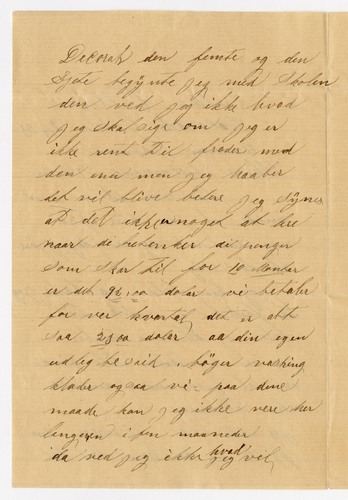 Decorah den femte og den
sjete begynte jeg med Skolen
den ved jeg ikke hvad
jeg skal sige om jeg er
ikke rent til freder med
den enu men jeg haaber
det vil blive bedre jeg synes
at det ikke er noget at lre
naar de betenker de penger
som skar til for 10 Monter
er det 92,00 doler vi betaler
for ver kvartal det er alt
saa 2300 doler aa din egen
udleg besaid. bøger vasking
kleder og saa vi- paa dene
maade kan jeg ikke vere her
lengere en i fm maaneder
da ved jeg ikke hvad jeg vil